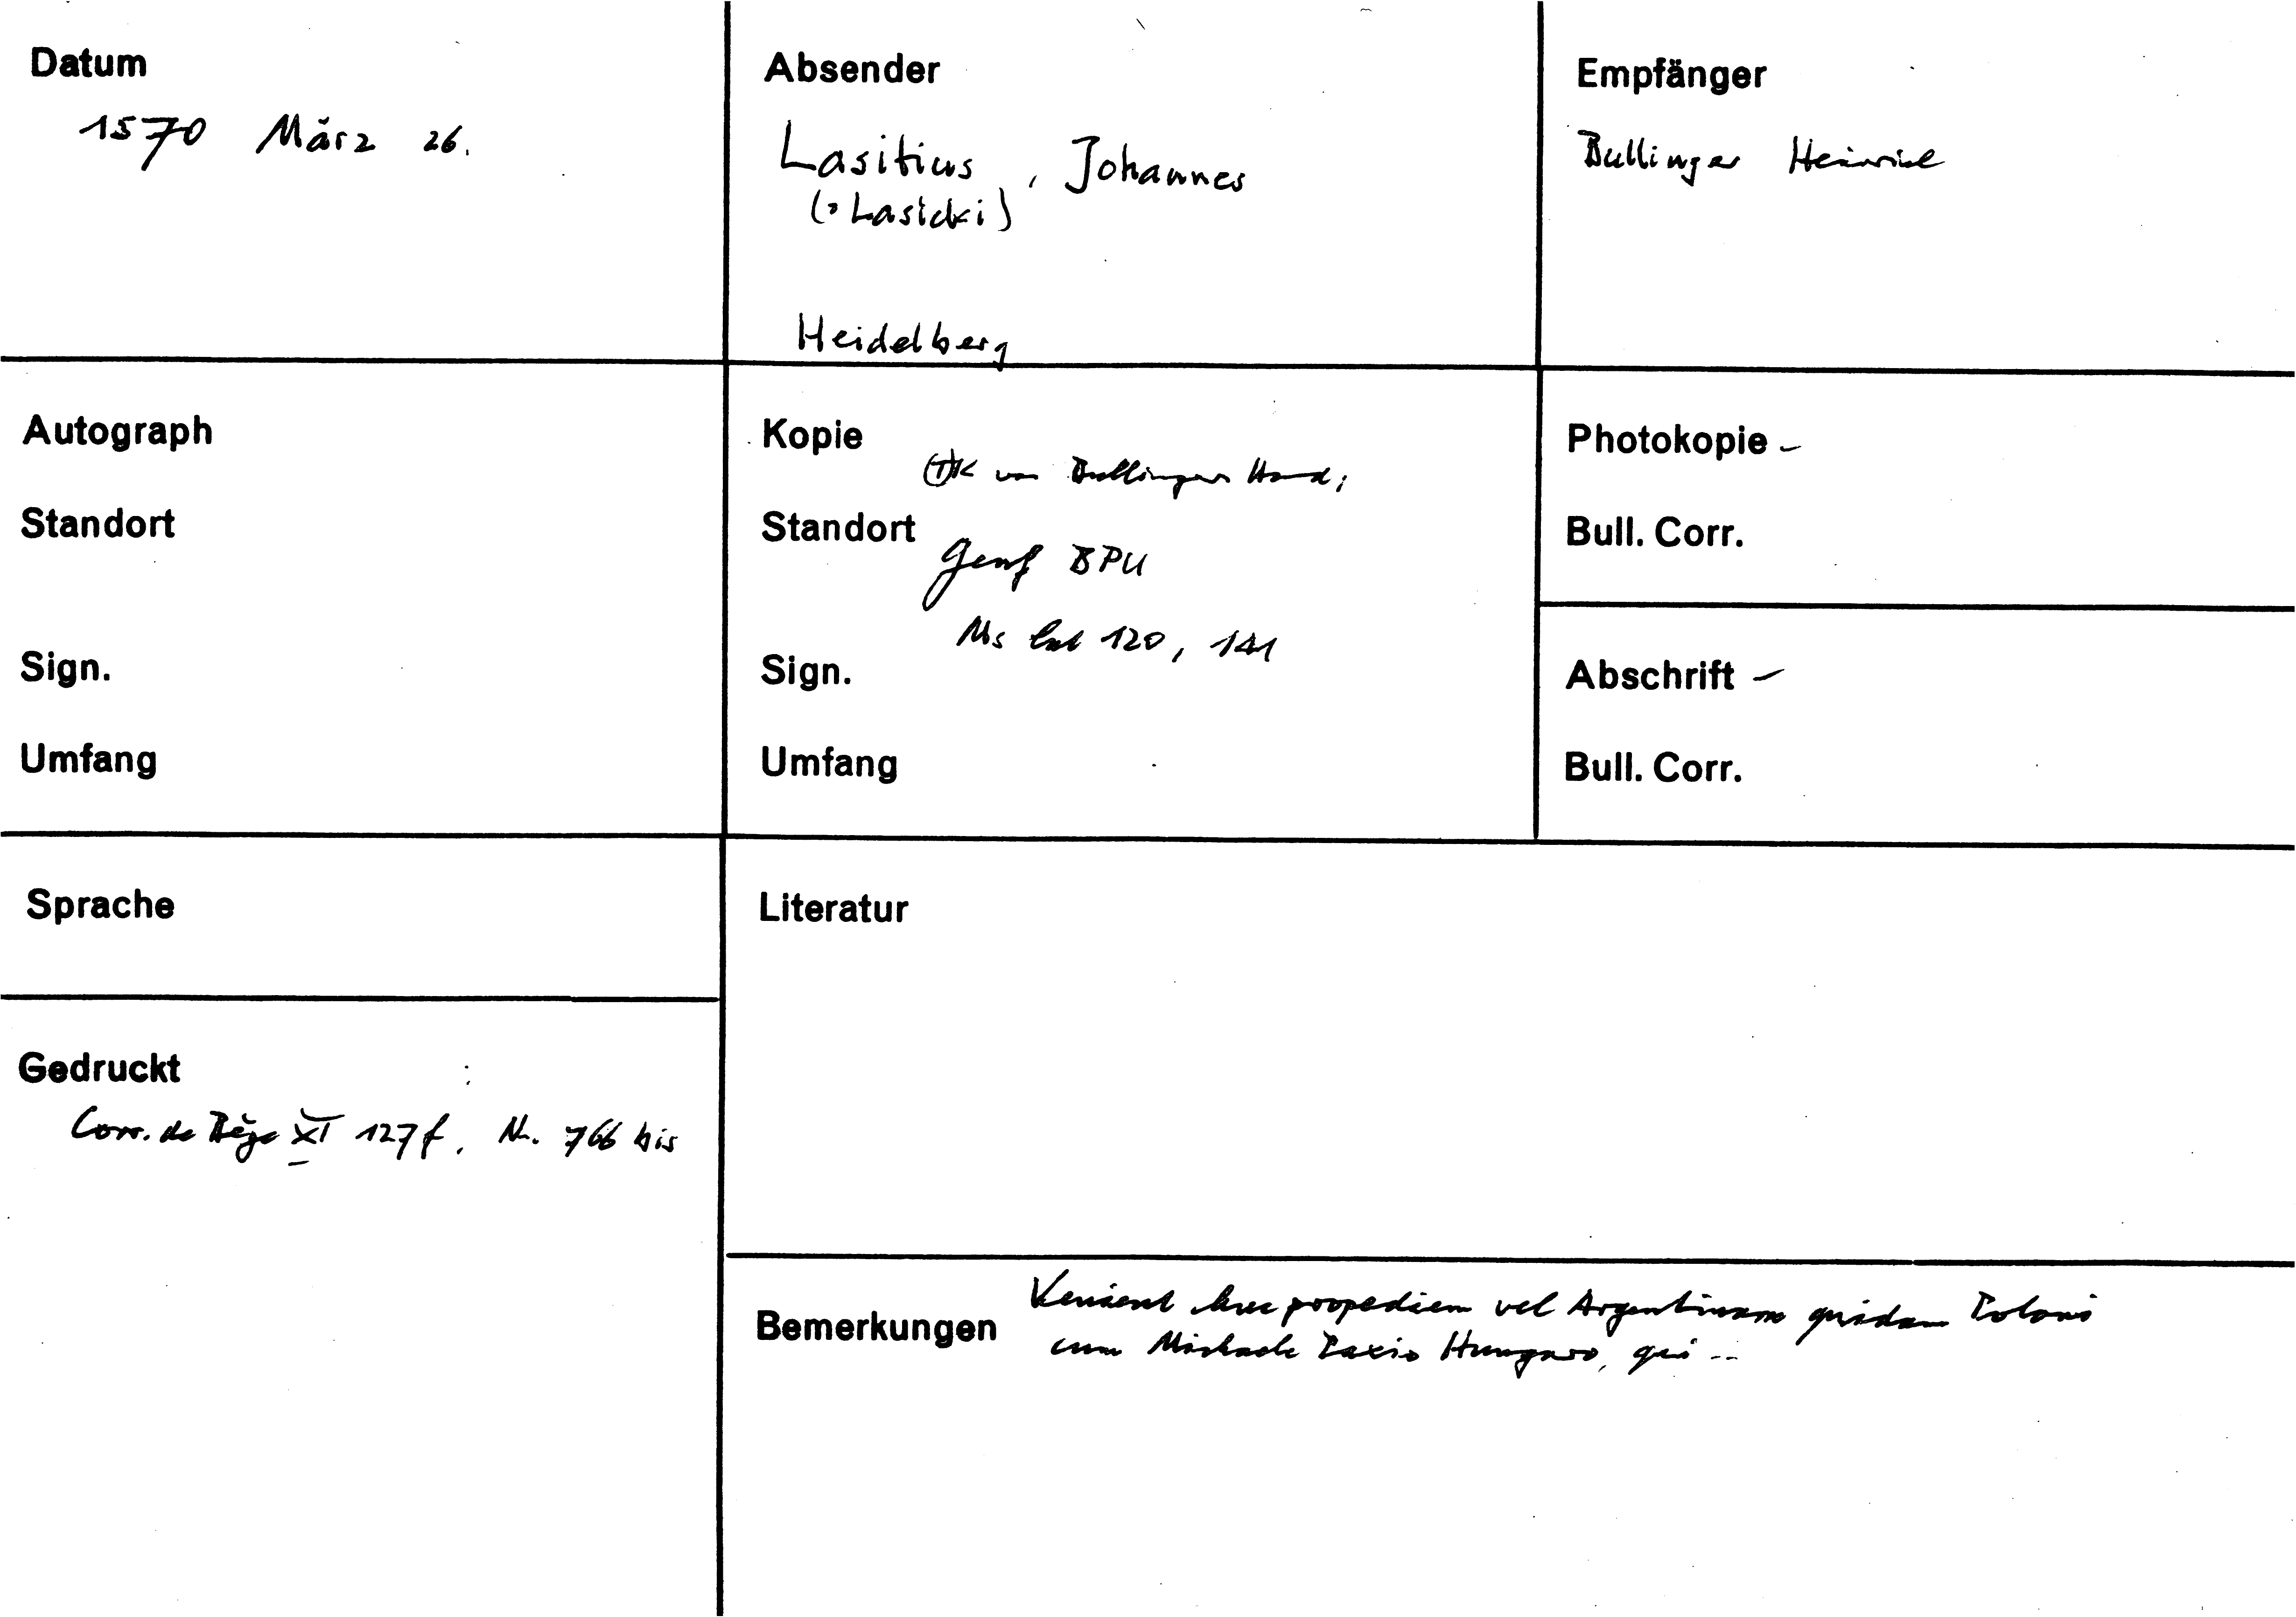 Datum
1570 März 26.
Absender
Lasitius, Johannes
(= Lasicki)
Heidelberg
Empfänger
Bullinger Heinrich
Autograph
Standort
Sign.
Umfang
Kopie
TK von Bullingers Hand;
Standort
Genf BPU
Ms lat 120, 141
Sign.
Umfang
Photokopie -
Bull. Corr.
Abschrift -
Bull. Corr.
Sprache
Gedruckt
Corr. de Bèze XI 127f. Nr. 766 bis
Literatur
Bemerkungen
Venient huc propediem vel Argentinam quidam Poloni
cum Michaele Paxio Hungaro, qui --